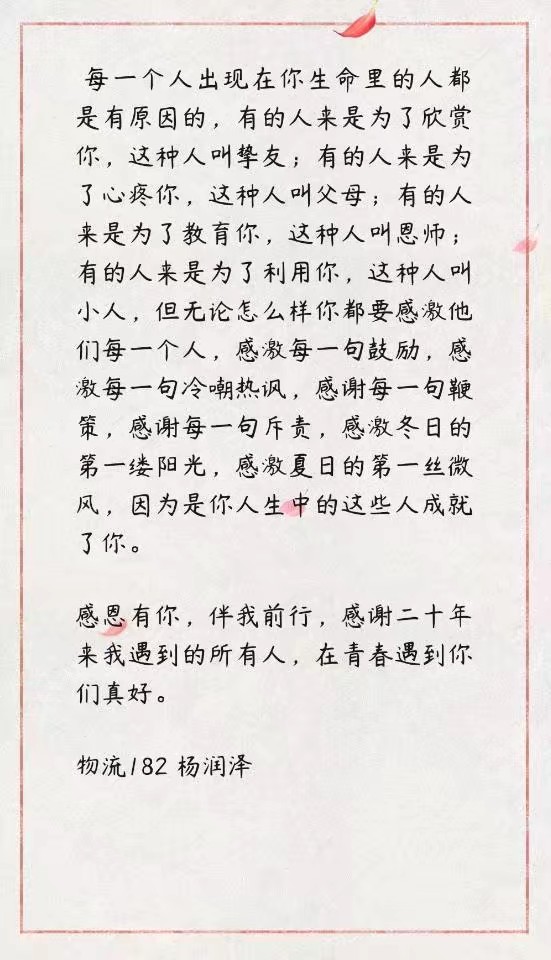 每一个人出现在你生命里的人都
是有原因的，有的人来是为了欣赏
你，这种人叫挚友；有的人来是为
了心疼你，这种人叫父母；有的人
来是为了教育你，这种人叫恩师；
有的人来是为了利用你，这种人叫
小人，但无论怎么样你都要感激他
们每一个人，感激每一句鼓励，感
激每一句冷嘲热讽，感谢每一句鞭
策，感谢每一句斥责，感激冬日的
第一缕阳光，感激夏日的第一丝微
风，因为是你人生中的这些人成就
了你。
感恩有你，伴我前行，感谢二十年
来我遇到的所有人，在青春遇到你
们真好。
物流182 杨润泽